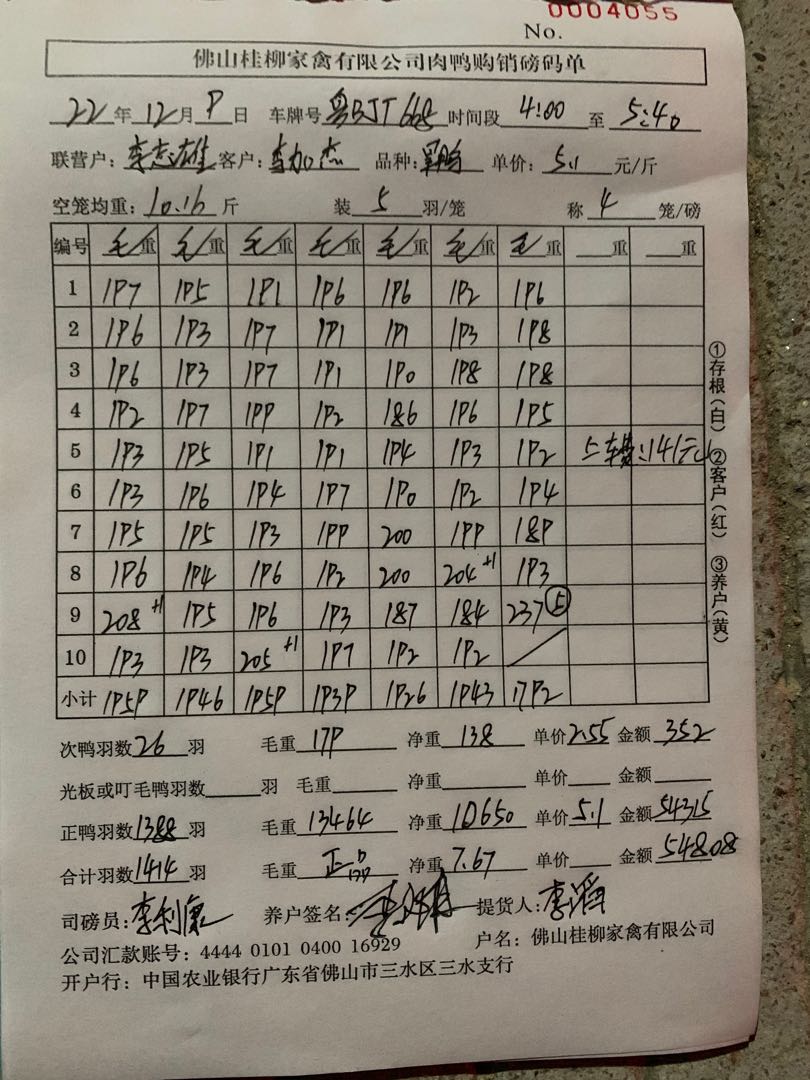 0004055
No.
佛山桂柳家禽有限公司肉鸭购销磅码单
22年12月9日 车牌号粤BJT668 时间段4:00至5:40
联营户:李志雄 客户:李加杰 品种: 单价:5.1元/斤
空笼均重:10.16斤 装5羽/笼 称4笼/磅
编号 毛重 毛重 毛重 毛重 毛重 毛重 毛重 重 重
1 197 195 191 196 196 192 196
2 196 193 197 191 191 193 198
3 196 193 197 191 190 198 198
4 192 197 199 192 186 196 195
5 193 195 191 191 194 193 192 上车费:141元
6 193 196 194 197 190 192 194
7 195 195 193 199 200 199 189
8 196 194 196 192 200 204+1 193
9 208+1 195 196 193 187 184 237⑤
10 193 193 205+1 197 192 192 /
小计 1959 1946 1959 1939 1926 1943 1792
①存根(白) ②客户(红) ③养户(黄)
次鸭羽数26羽 毛重179 净重138 单价2.55 金额352
光板或叮毛鸭羽数 羽 毛重 净重 单价 金额
正鸭羽数1388羽 毛重13464 净重10650 单价5.1 金额54315
合计羽数1414羽 毛重正品 净重7.67 单价 金额54808
司磅员:李剑康 养户签名: 提货人:李滔
公司汇款账号:4444 0101 0400 16929 户名:佛山桂柳家禽有限公司
开户行:中国农业银行广东省佛山市三水区三水支行